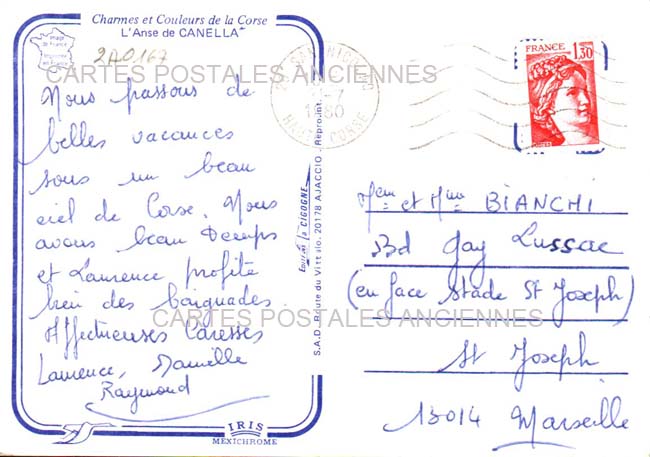 Charmes et Couleurs de la Corse
L'Anse de CANELLA
Image de France
Imprimé en France
2A0167
CARTES POSTALES ANCIENNES
Nous passons de
belles vacances
sous un beau
ciel de Corse. Nous
avons beau temps
et Laurence profite
bien des baignades.
Affectueuses Caresses
Laurence, Danielle
Raymond
CARTES POSTALES ANCIENNES
IRIS
MEXICHROME
Editions la CIGOGNE
S.A.D. Route du Vittulo, 20178 AJACCIO
-7
1980
HAUTE CORSE
FRANCE
1,30
et Mme BIANCHI
Bd Gay Lussac
(en face stade St Joseph)
St Joseph
13014 Marseille